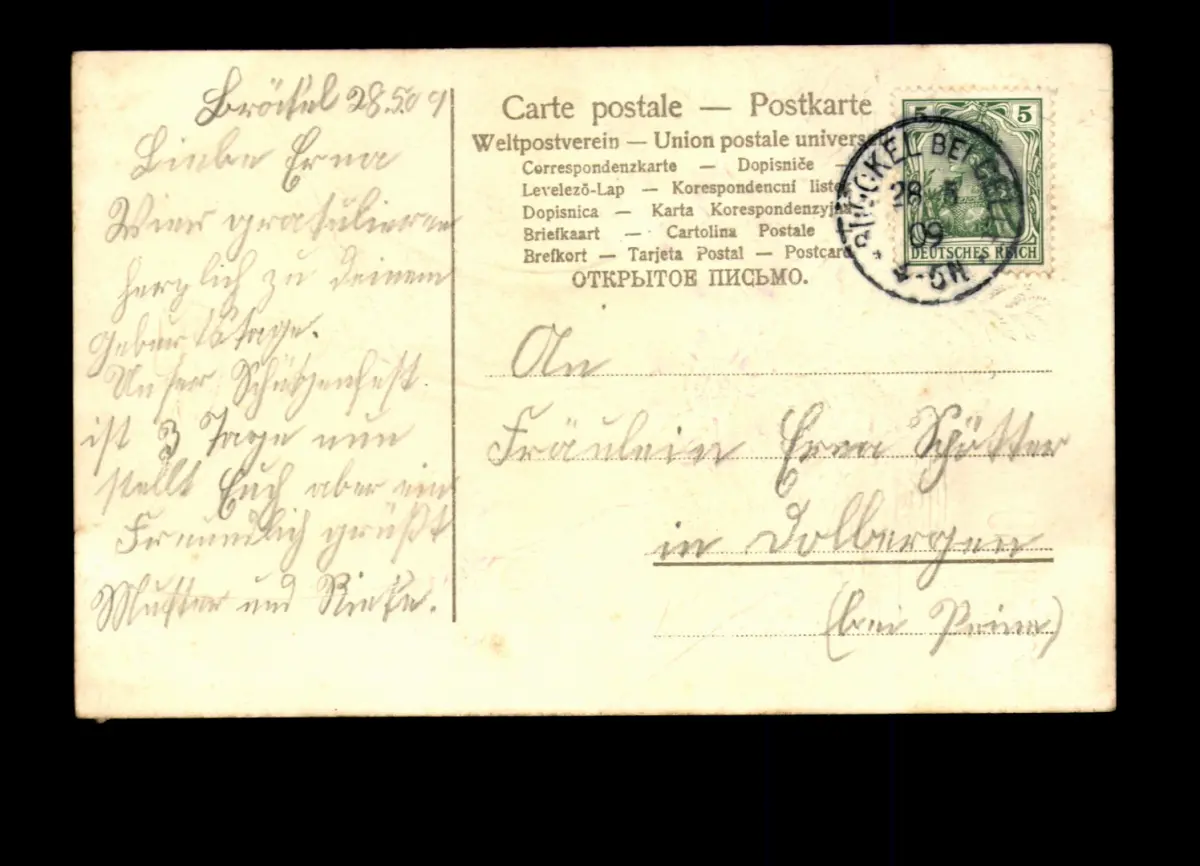 Bröckel 28.5.09
Liebe Erna
Wier gratulieren
herzlich zu deinem
Geburtstage.
Unser Schützenfest
ist 3 Tage nun
stellt Euch aber ein
Freundlich grüßt
Mutter und
Carte postale — Postkarte
Weltpostverein — Union postale univers
Correspondenzkarte — Dopisniče —
Levelező-Lap — Korespondencní liste
Dopisnica — Karta Korespondenzyjna
Briefkaart — Cartolina Postale
Brefkort — Tarjeta Postal — Postcard
ОТКРЫТОЕ ПИСЬМО.
5 5
DEUTSCHES REICH
BRÖCKEL BEI CELLE
28 5
09
4-5N
An
Fräulein Erna Schötter
in Dolbergen
(bei Peine)